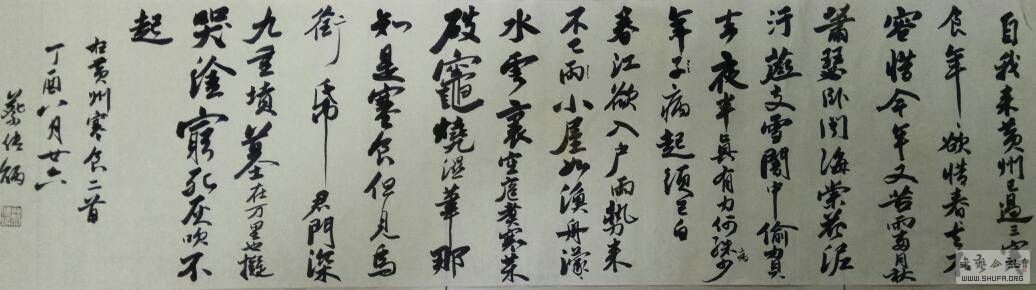 自我来黄州已過三寒
食年〻欲惜春去不
容惜今年又苦雨兩月秋
蕭瑟卧聞海棠花泥
汙燕支雪闇中偷負
去夜半真有力何殊少
病
年子病起頭已白
春江欲入户雨勢来
不已雨小屋如漁舟濛
水雲裏空庖煮寒菜
破竈燒濕葦那
知是寒食但見烏
銜帋君門深
九重墳墓在万里也擬
哭塗窮死灰吹不
起
右黄州寒食二首
丁酉八月廿六
蔡
WWW.SHUFA.ORG